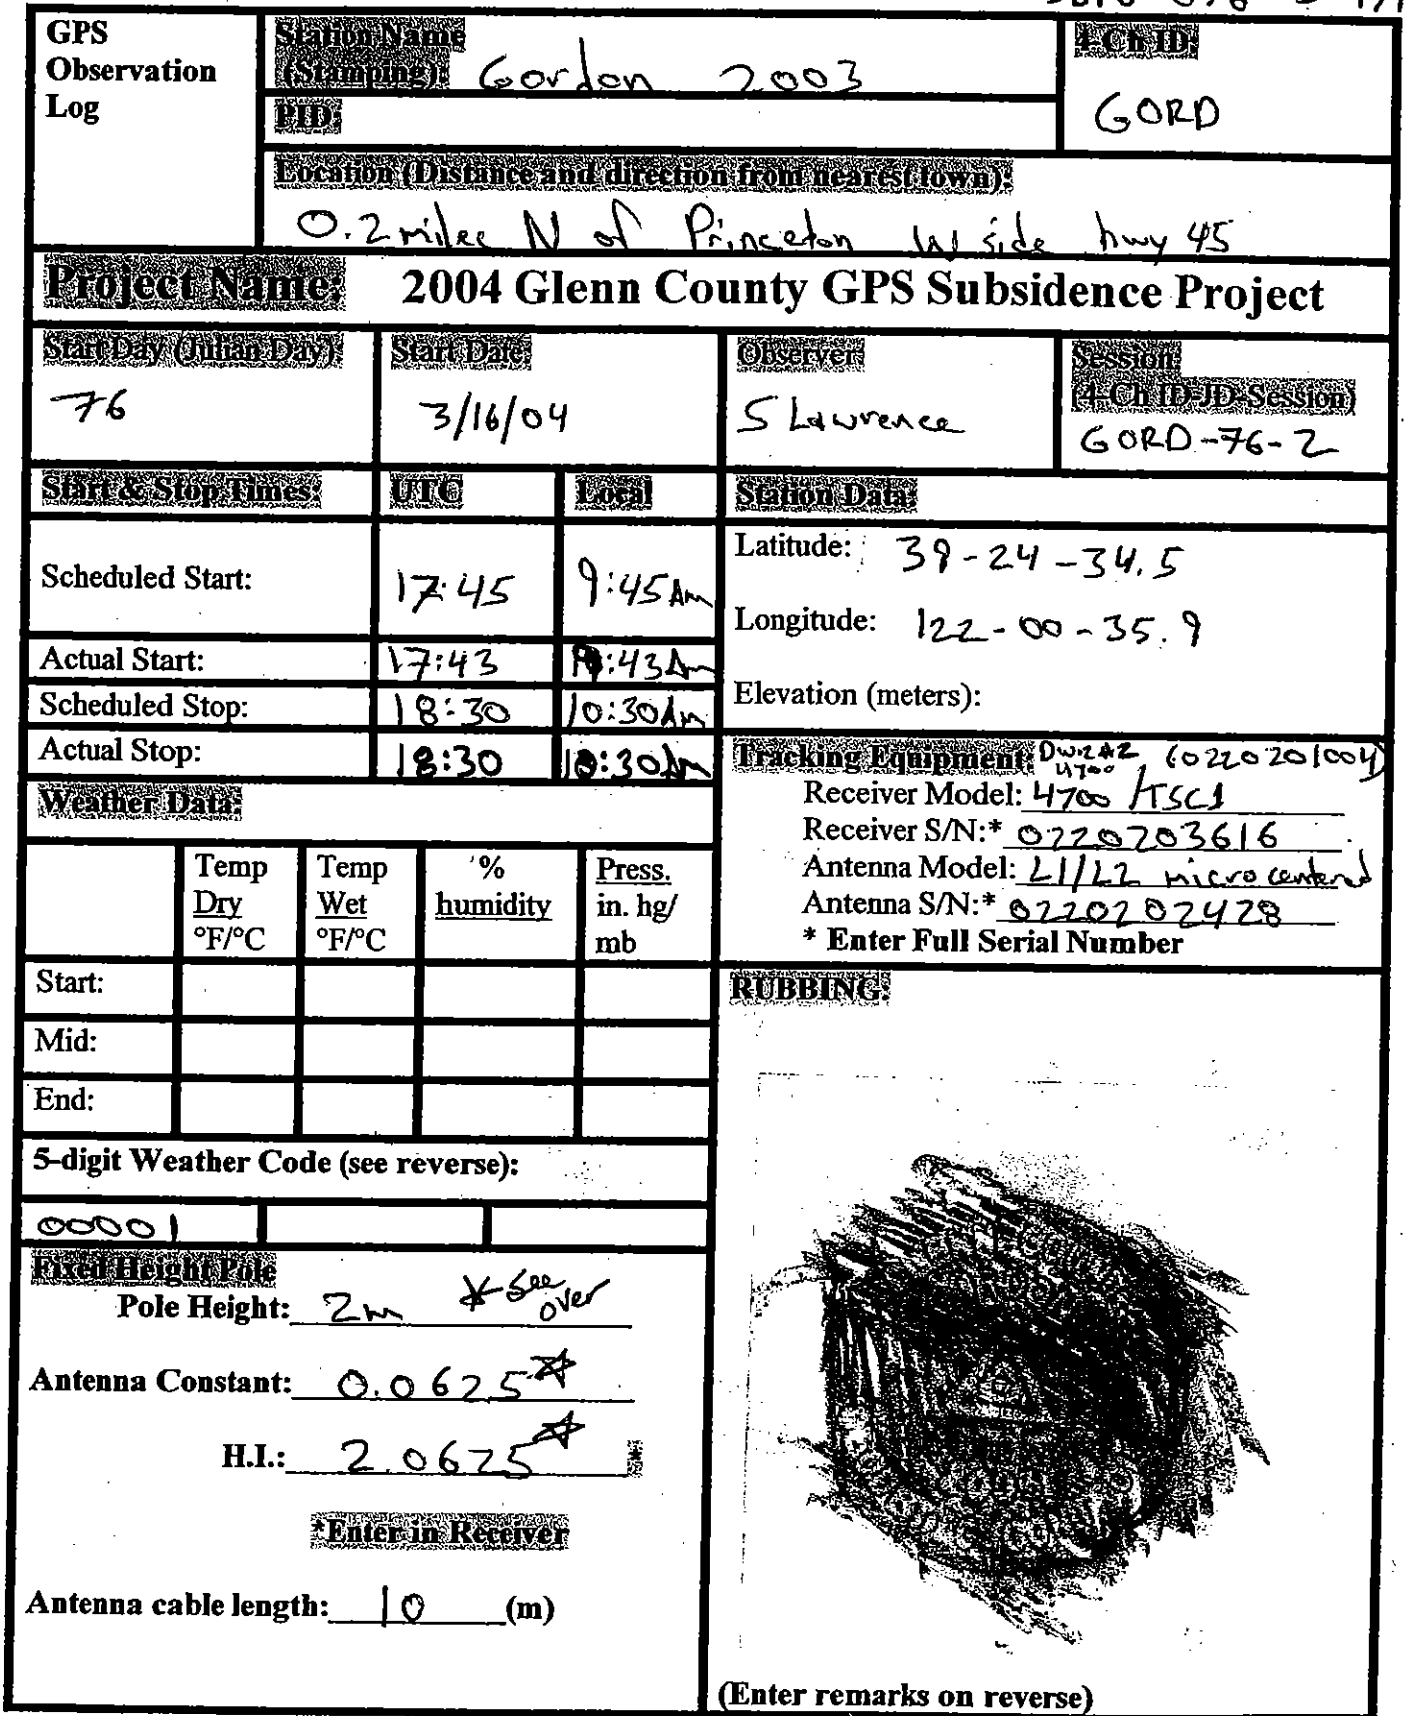 GPS
Observation
Log
Station Name
(Stamping): Gordon 2003
4-Ch ID:
GORD
PID:
Location (Distance and direction from nearest town):
0.2 miles N of Princeton W side hwy 45
Project Name: 2004 Glenn County GPS Subsidence Project
Start Day (Julian Day):
76
Start Date:
3/16/04
Observer:
S Lawrence
Session:
(4-Ch ID-JD-Session)
GORD-76-2
Start & Stop Times: UTC Local
Scheduled Start: 17:45 9:45Am
Actual Start: 17:43 :43Am
Scheduled Stop: 18:30 10:30Am
Actual Stop: 18:30 10:30Am
Station Data:
Latitude: 39-24-34.5
Longitude: 122-00-35.9
Elevation (meters):
Tracking Equipment:
4700
Receiver Model: 4700 /TSC1
Receiver S/N:* 0220203616
Antenna Model: L1/L2 micro centered
Antenna S/N:* 0220202428
* Enter Full Serial Number
Weather Data:
Temp
Dry
°F/°C
Temp
Wet
°F/°C
%
humidity
Press.
in. hg/
mb
Start:
Mid:
End:
5-digit Weather Code (see reverse):
00001
Fixed Height Pole
Pole Height: 2m *See
over
Antenna Constant: 0.0625☆
H.I.: 2.0625☆ *
*Enter in Receiver
Antenna cable length: 10 (m)
RUBBING:
(Enter remarks on reverse)